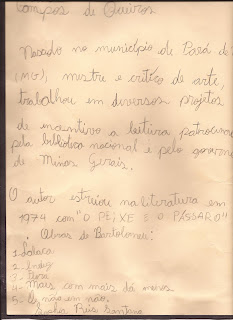 Campos de Queirós
Nascido no município de Pará de
(MG), mestre e crítico de arte,
trabalhou em diversos projetos
de incentivo a leitura patrocinado
pela biblioteca nacional e pelo governo
de Minas Gerais.
O autor estreiou na literatura em
1974 com "O PEIXE E O PÁSSARO"
Obras de Bartolomeu:
2 - Indez
4 - Mais com mais dá menos
5 - O não em não.
Santana